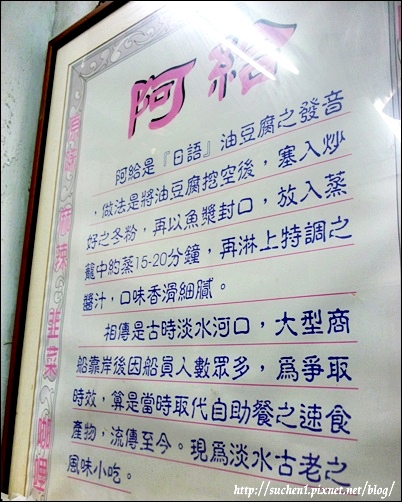 阿給
阿給是『日語』油豆腐之發音
，做法是將油豆腐挖空後，塞入炒
好之冬粉，再以魚漿封口，放入蒸
籠中約蒸15-20分鐘，再淋上特調之
醬汁，口味香滑細膩。
相傳是古時淡水河口，大型商
船靠岸後因船員人數眾多，爲爭取
時效，算是當時取代自助餐之速食
產物，流傳至今。現爲淡水古老之
風味小吃。
原味 麻辣 韭菜 咖哩
http://suchen1.pixnet.net/blog/